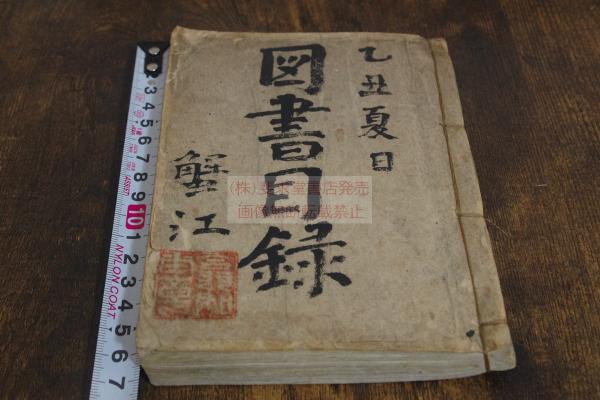 乙丑夏日
図書目録
蟹江
(株)
書店発売
画像無断転載禁止
2
3
4
5
6
7
8
9
10
1
2
3
4
5
6
7
NYLON COAT